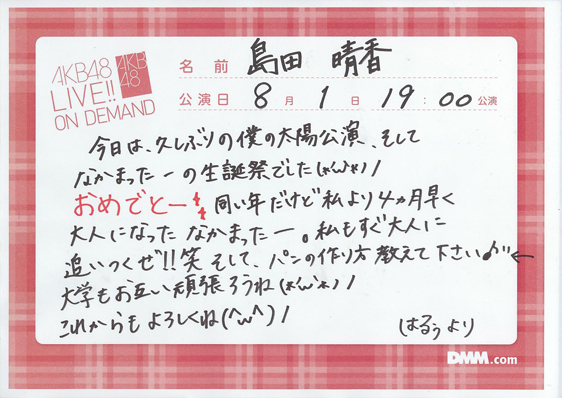 AKB48
LIVE!!
ON DEMAND
AKB
48
名前 島田 晴香
公演日 8月1日 19:00公演
今日は、久しぶりの僕の太陽公演、そして
なかまったーの生誕祭でした(*^^*)/
おめでとー!! 同い年だけど私より4ヵ月早く
大人になった なかまったー。私もすぐ大人に
追いつくぜ!!笑 そして、パンの作り方 教えて下さい♪"←
大学もお互い頑張ろうね(*^^*)/
これからもよろしくね(^ω^)/
はるぅより
DMM.com